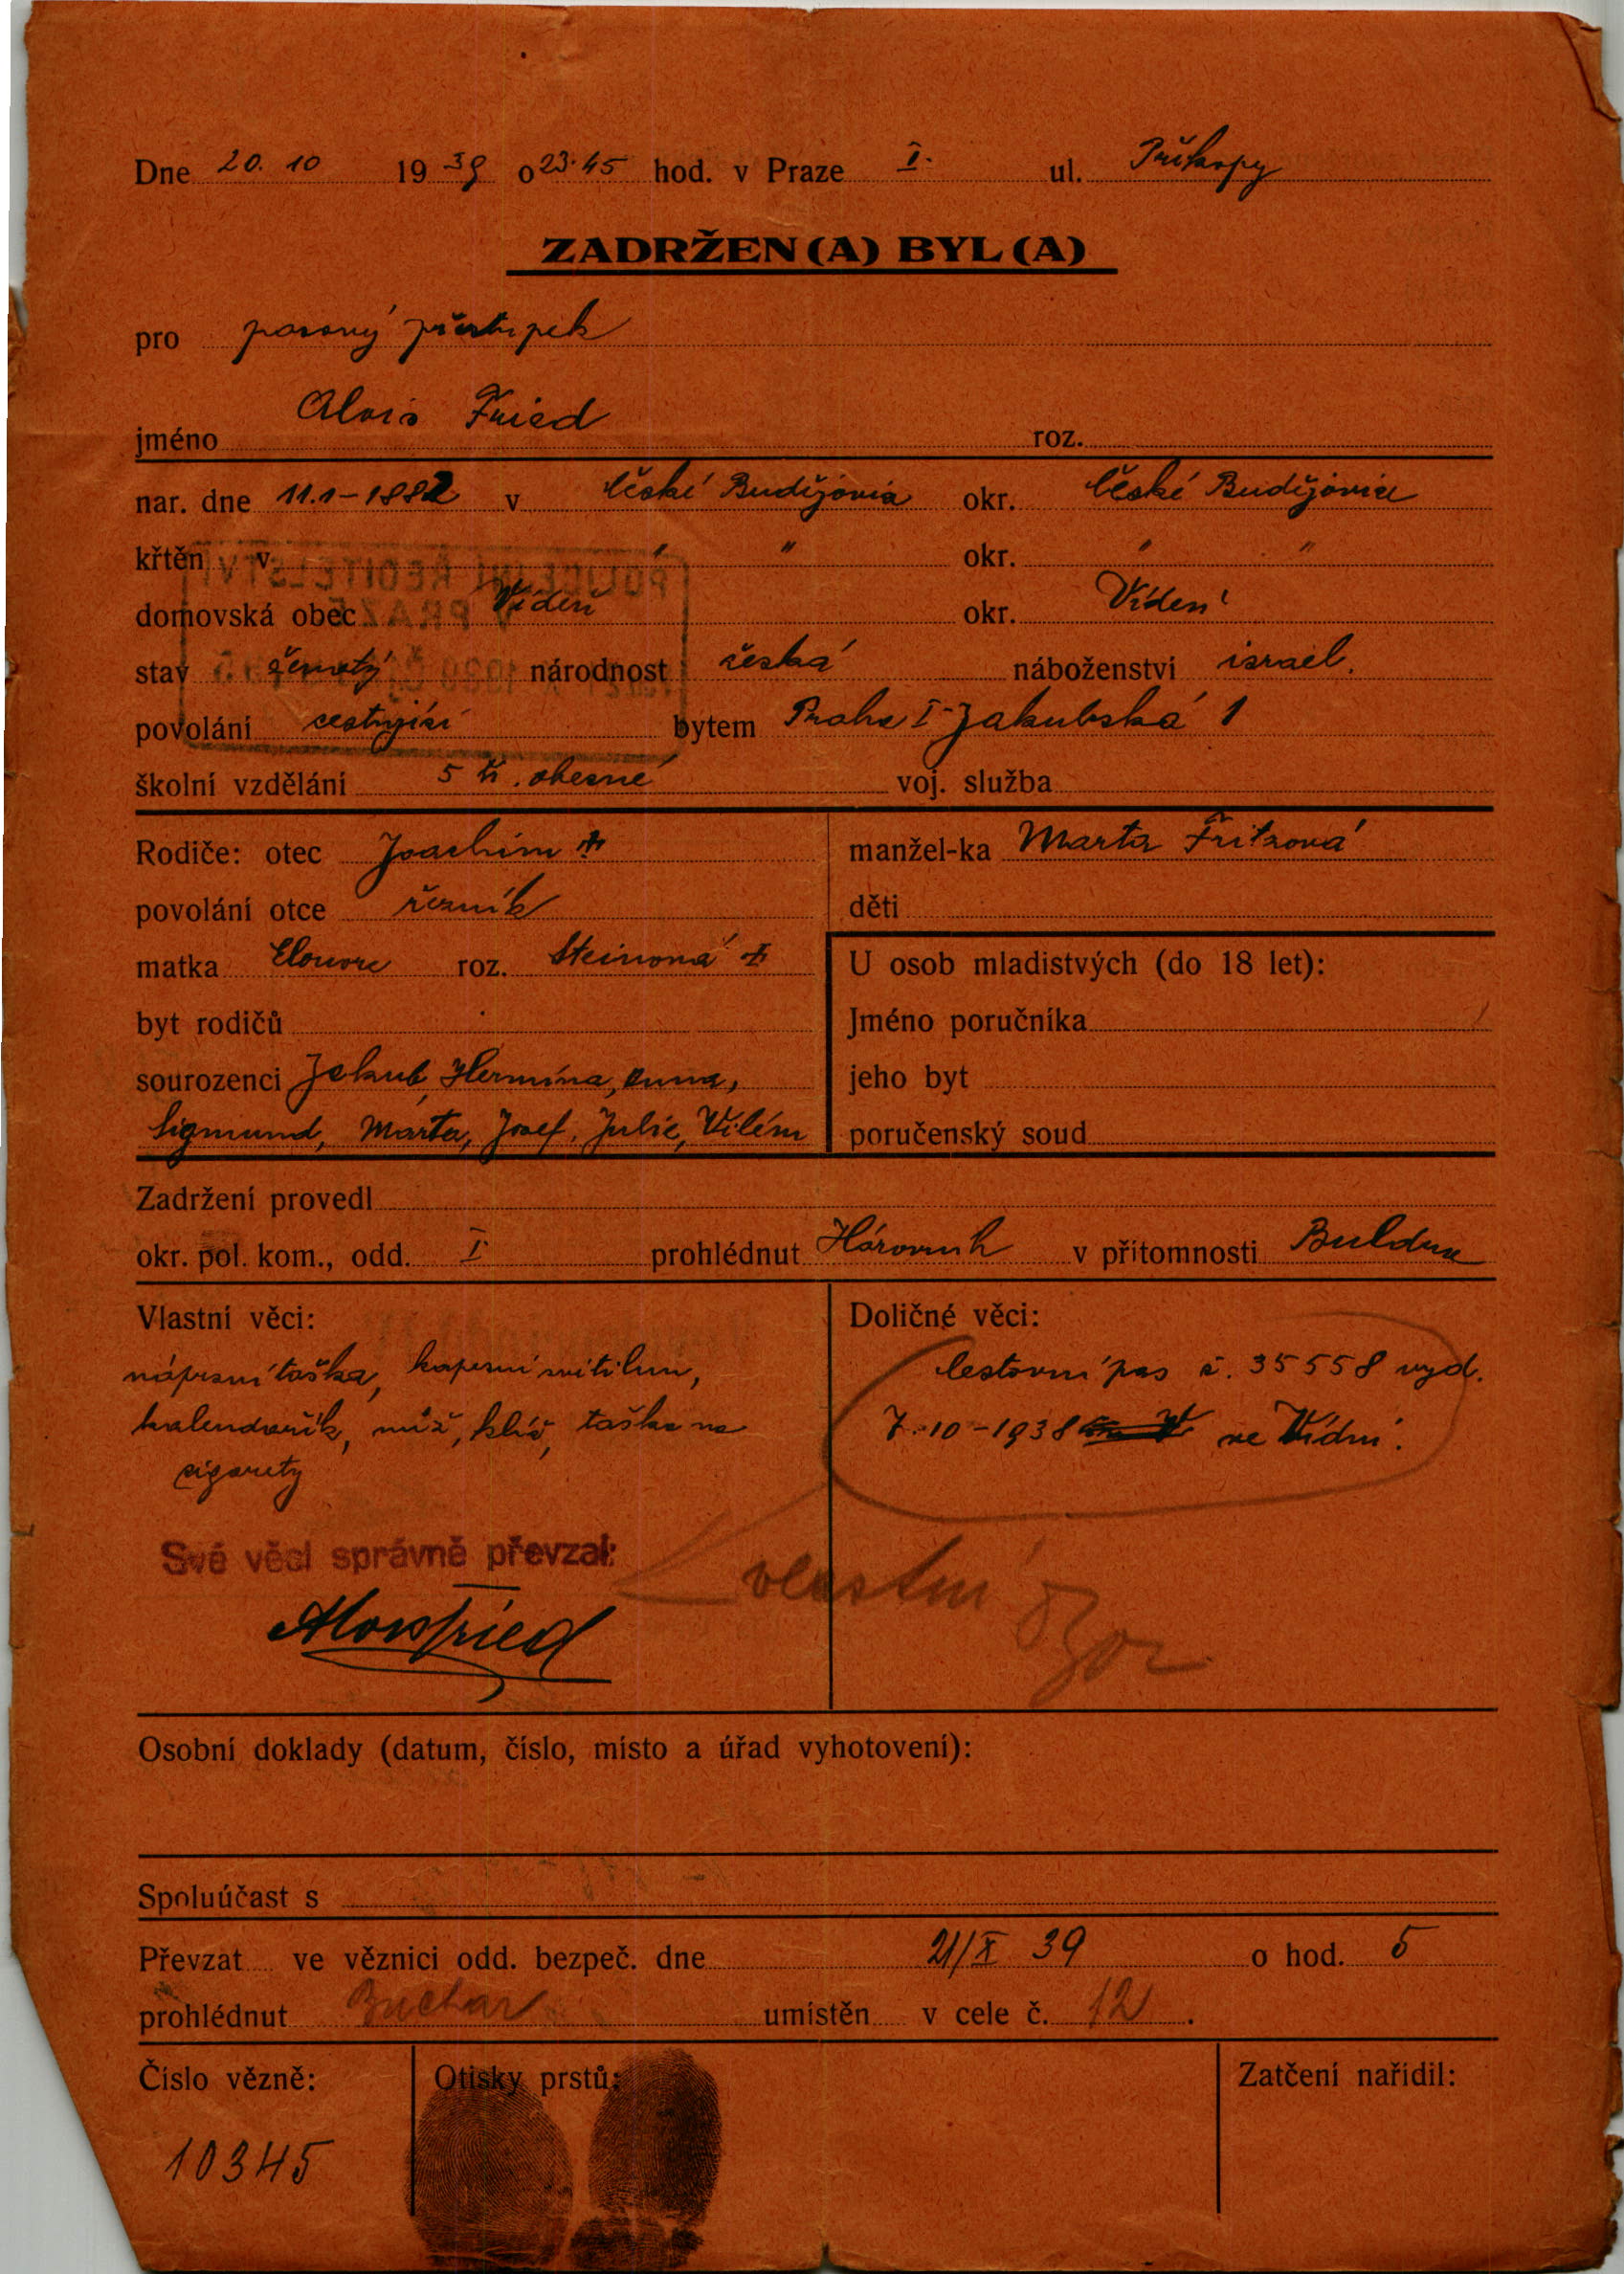 Dne 20. 10 1939 o 23.45 hod. v Praze I. ul. Příkopy
ZADRŽEN(A) BYL(A)
pro pasový přestupek
jméno Alois Fried roz.
nar. dne 11.1-1882 v České Budějovice okr. České Budějovice
křtěn v " " okr. " "
domovská obec Vídeň okr. Vídeň
stav ženatý národnost česká náboženství israel.
povolání cestující bytem Praha I-Jakubská 1
školní vzdělání 5 tř. obecné voj. služba
Rodiče: otec Joachim manžel-ka Marta
povolání otce řezník děti
matka roz. Steinová
U osob mladistvých (do 18 let):
byt rodičů Jméno poručníka
sourozenci Jakub, Hermína, Anna, jeho byt
Sigmund, Marta, Josef, Julie, Vilém poručenský soud
Zadržení provedl
okr. pol. kom., odd. I prohlédnut v přítomnosti
Vlastní věci: Doličné věci:
náprsní taška, kapesní svítilnu, Cestovní pas č. 35558 vyd.
kalendařík, nůž, klíč, taška na 7-10-1938 ve Vídni.
cigarety
Své věci správně převzal:
vlastní
Alois Fried
Osobní doklady (datum, číslo, místo a úřad vyhotovení):
Spoluúčast s
Převzat ve věznici odd. bezpeč. dne 21/X 39 o hod. 5
prohlédnut Buchar umístěn v cele č. 12.
Číslo vězně: Otisky prstů: Zatčení nařídil:
10345